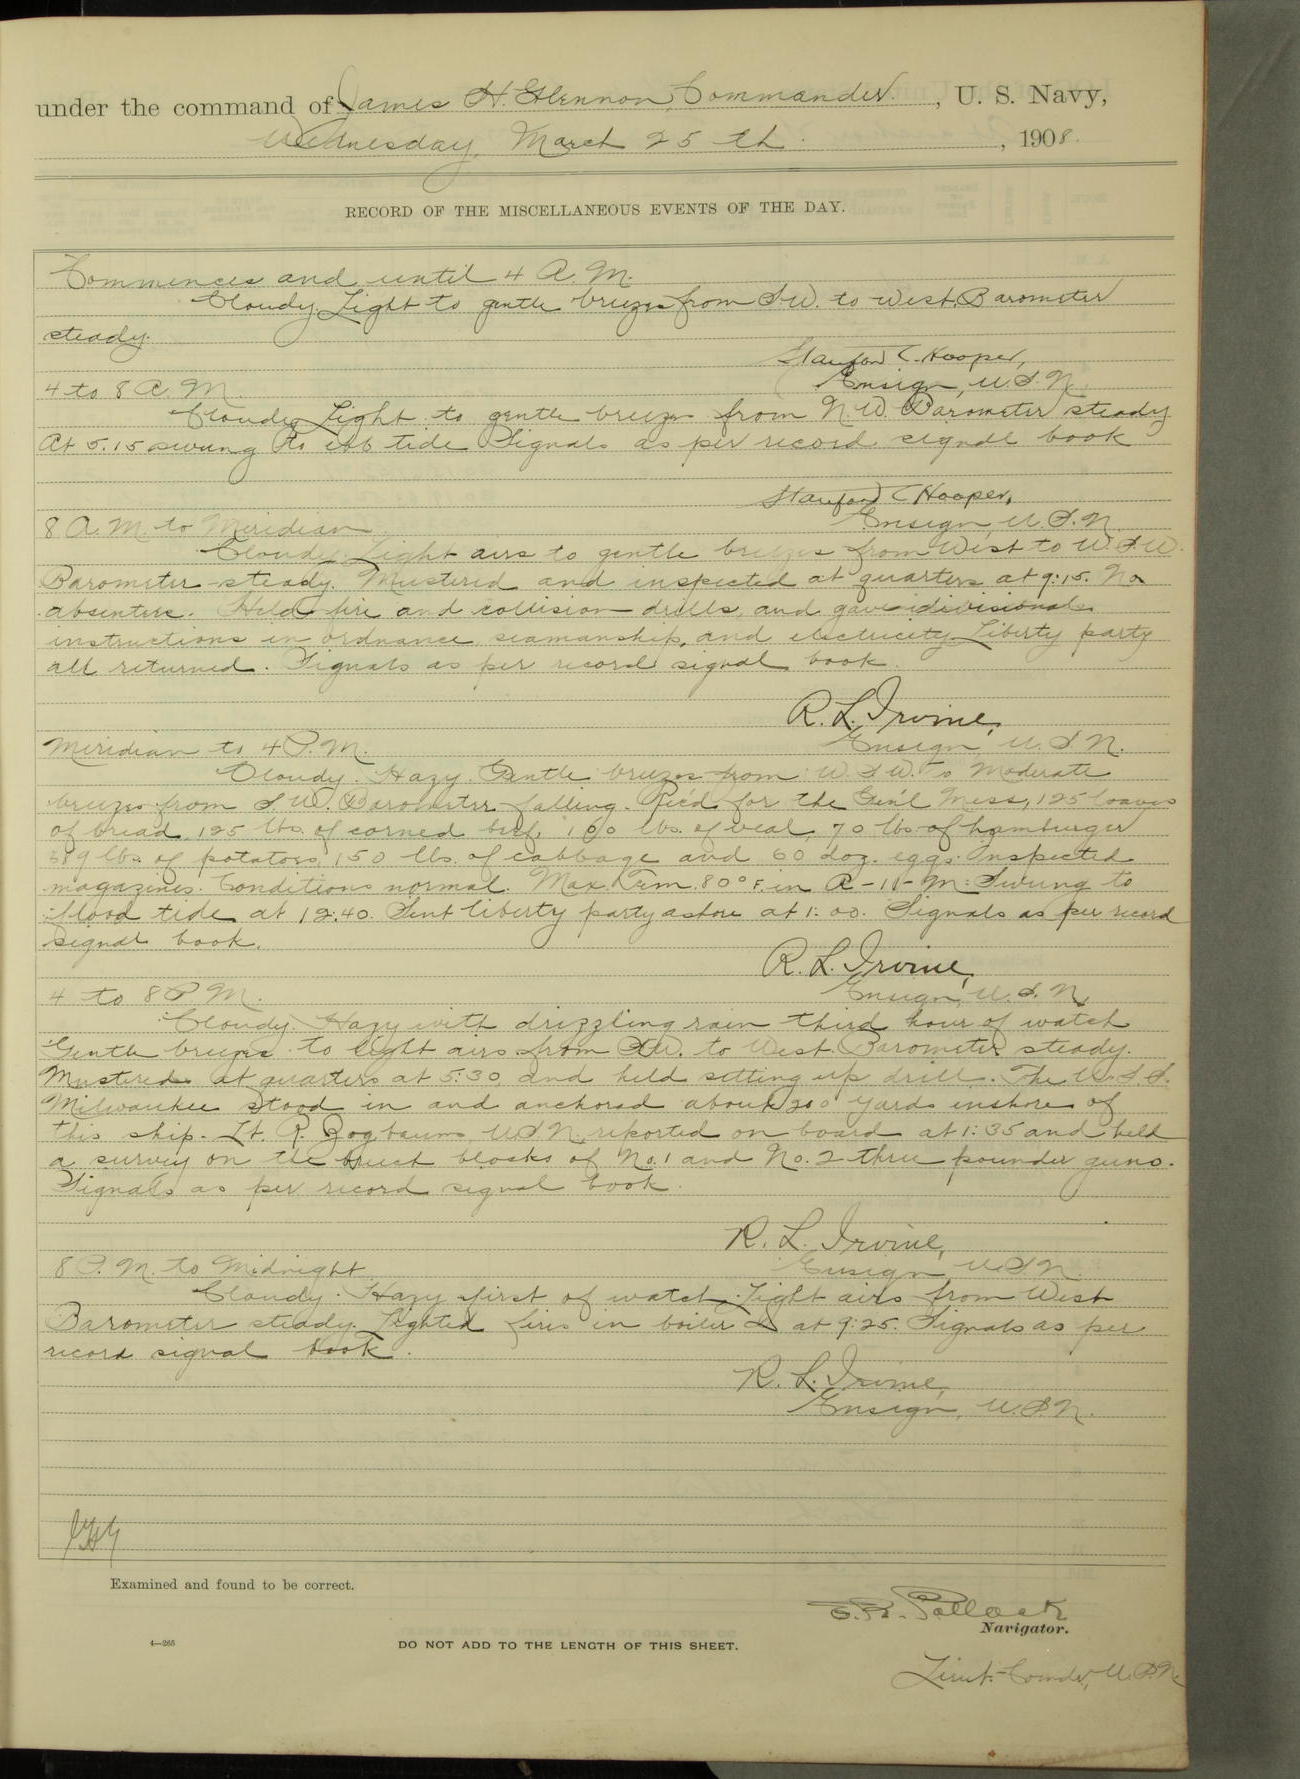 under the command of James H. Glennon, Commander, U. S. Navy,
Wednesday, March 25th, 1908.
RECORD OF THE MISCELLANEOUS EVENTS OF THE DAY.
Commences and until 4 A.M.
Cloudy. Light to gentle breezes from S.W. to West. Barometer
steady.
Stanford C. Hooper,
4 to 8 A.M. Ensign, U.S.N.
Cloudy. Light to gentle breezes from N.W. Barometer steady
At 5.15 swung to ebb tide Signals as per record signal book
Stanford C Hooper,
8 A.M. to Meridian Ensign, U.S.N.
Cloudy. Light airs to gentle breezes from West to W.S.W.
Barometer steady. Mustered and inspected at quarters at 9:15. No
absentees. Held fire and collision drills, and gave divisional
instructions in ordnance, seamanship, and electricity. Liberty party
all returned. Signals as per record signal book.
R. L. Irvine,
Meridian to 4 P.M. Ensign, U.S.N.
Cloudy. Hazy. Gentle breezes from W.S.W. to Moderate
breezes from S.W. Barometer falling. Rec'd for the Gen'l Mess, 125 loaves
of bread, 125 lbs. of corned beef, 160 lbs. of veal, 70 lbs. of hamburger
389 lbs. of potatoes, 150 lbs. of cabbage and 60 doz. eggs. Inspected
magazines. Conditions normal. Max. Tem. 80° F. in A-11-M. Swung to
flood tide at 12:40. Sent liberty party ashore at 1:00. Signals as per record
signal book.
R. L. Irvine,
4 to 8 P.M. Ensign, U.S.N.
Cloudy. Hazy with drizzling rain third hour of watch
Gentle breezes to light airs from SW. to West. Barometer steady.
Mustered at quarters at 5:30 and held setting up drill. The U.S.S.
Milwaukee stood in and anchored about 200 yards inshore of
this ship. Lt. R. Zogbaum, USN, reported on board at 1:35 and held
a survey on the breech blocks of No. 1 and No. 2 three pounder guns.
Signals as per record signal book.
R. L. Irvine,
8 P.M. to Midnight Ensign, U.S.N.
Cloudy. Hazy first of watch. Light airs from West
Barometer steady. Lighted fires in boiler at 9:25. Signals as per
record signal book.
R. L. Irvine,
Ensign, U.S.N.
JHG
Examined and found to be correct.
Pollock
Navigator.
4—265
DO NOT ADD TO THE LENGTH OF THIS SHEET.
Lieut.-Comdr, U.S.N.